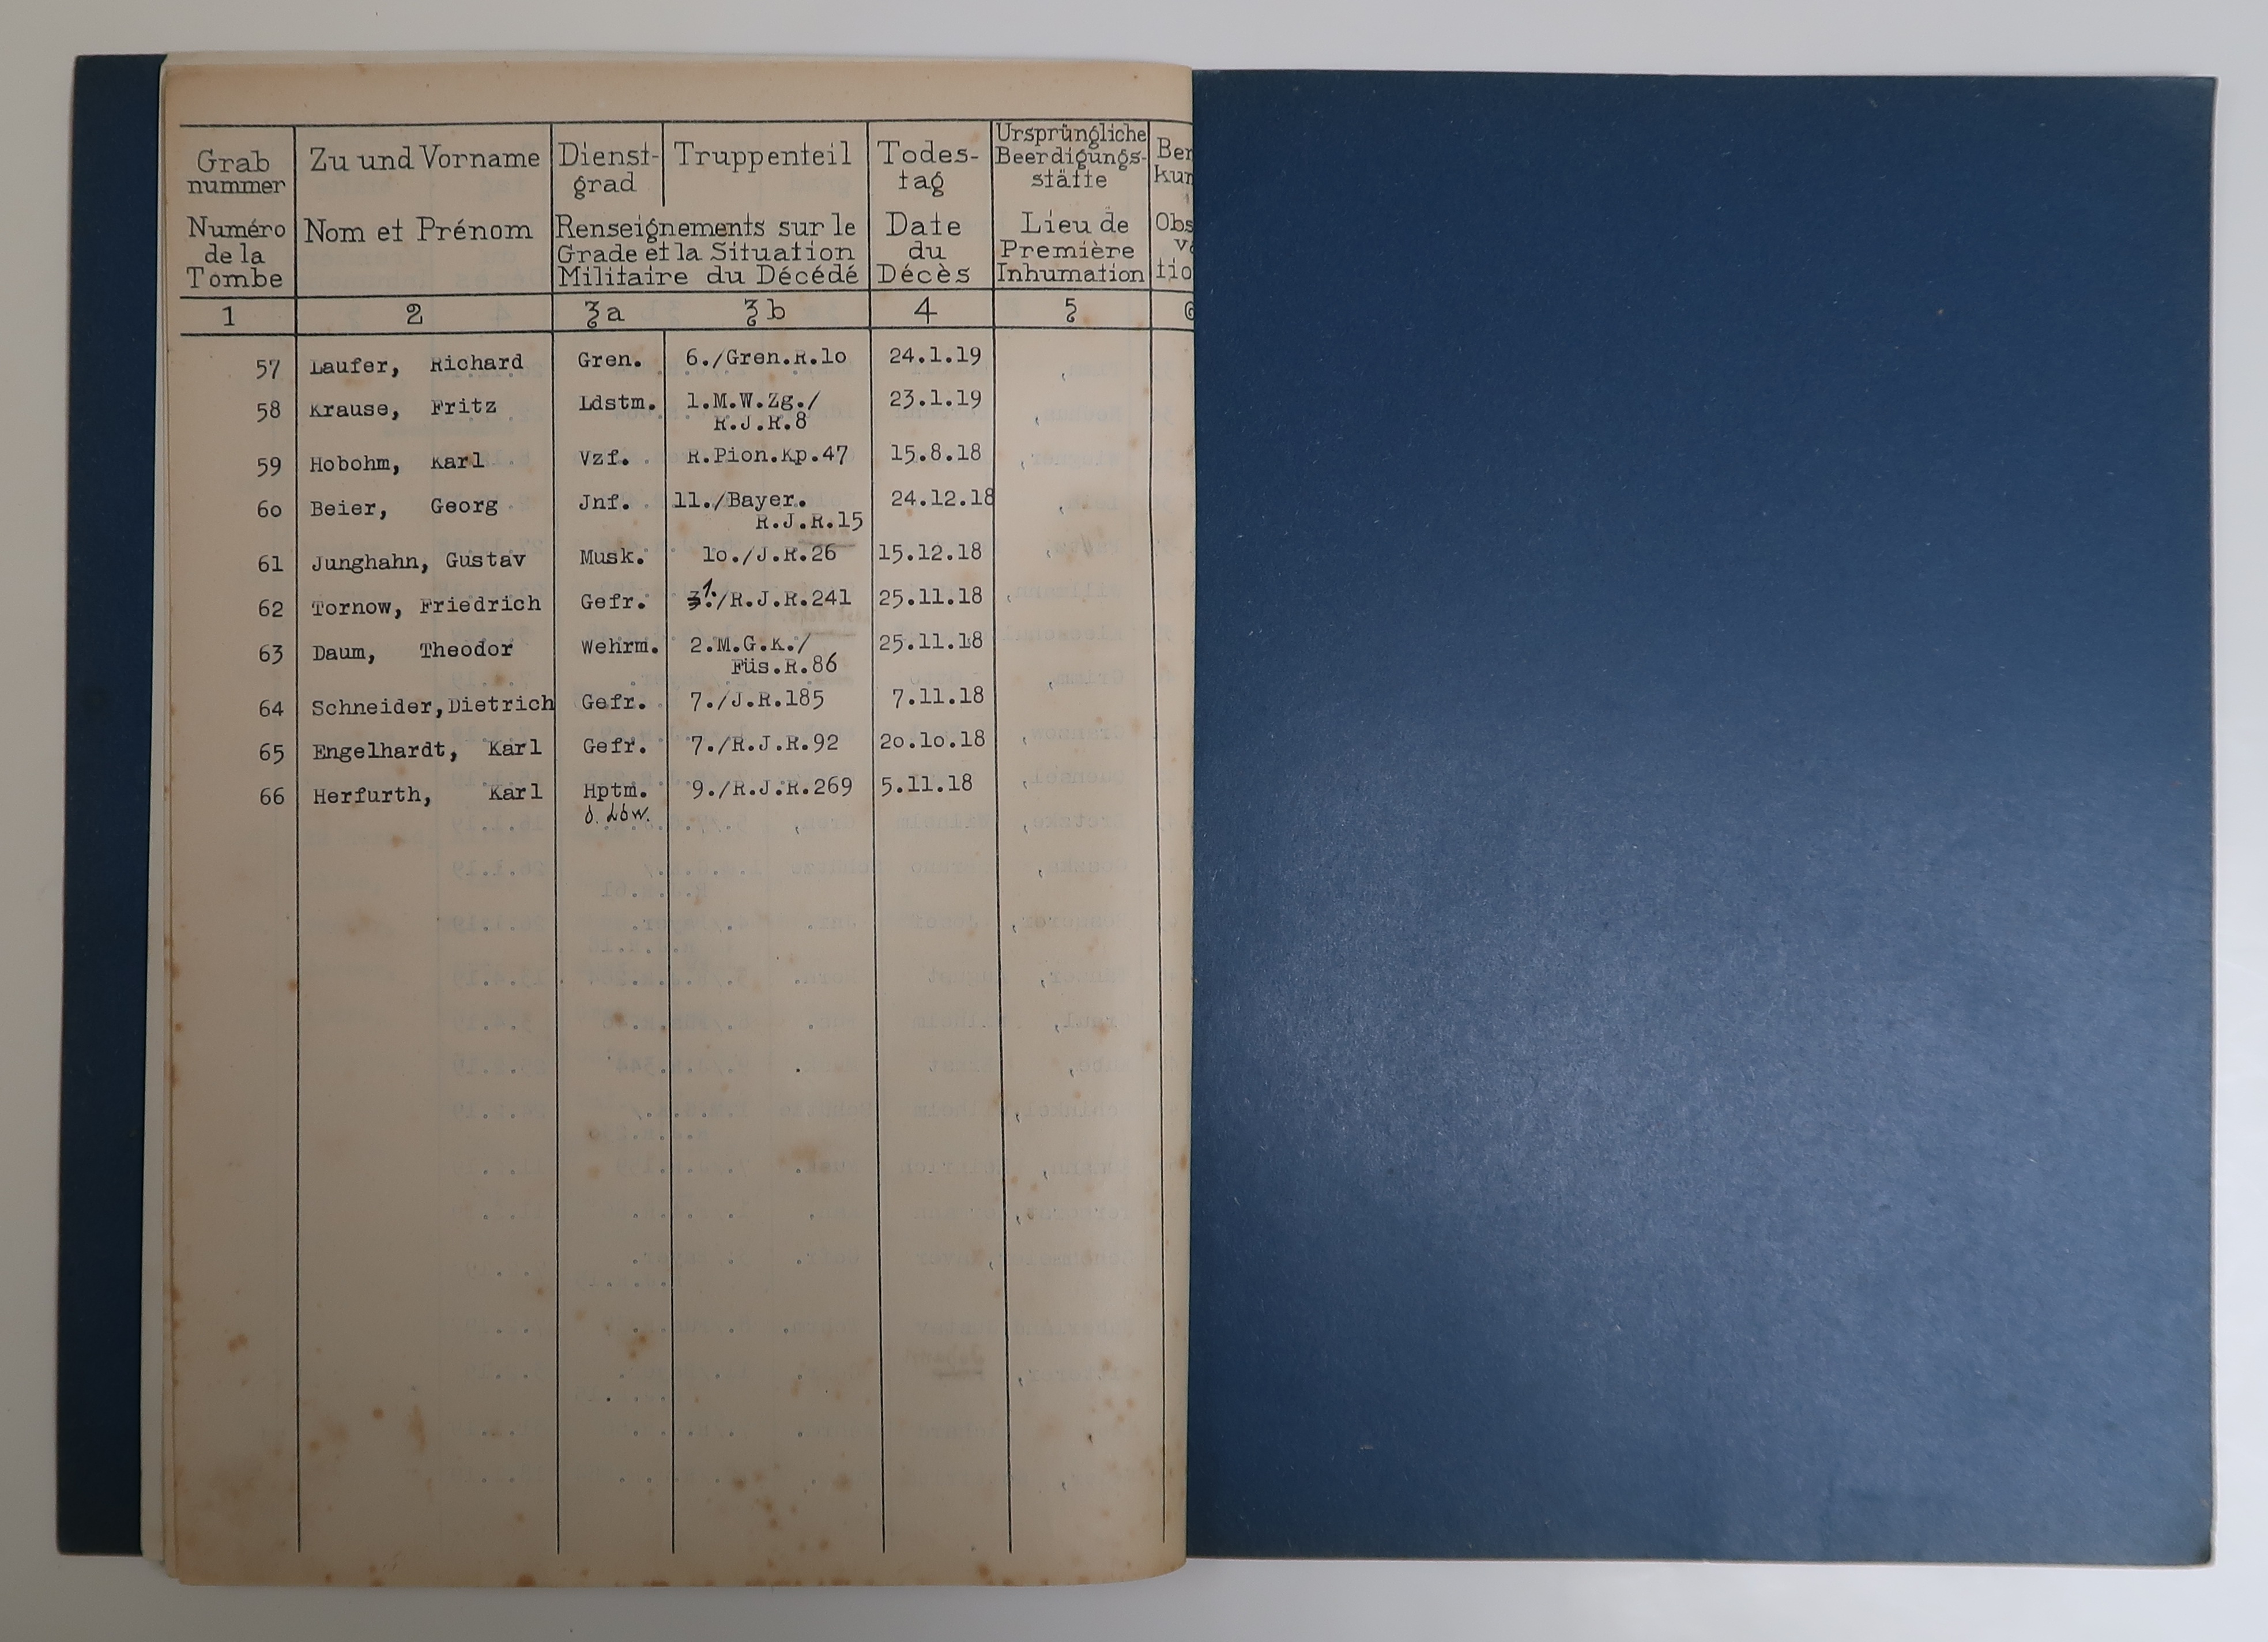 Grab nummer Zu und Vorname Dienst-grad Truppenteil Todes-tag Ursprüngliche Beerdigungs-stätte
Numéro de la Tombe Nom et Prénom Renseignements sur le Grade et la Situation Militaire du Décédé Date du Décès Lieu de Première Inhumation
1 2 3a 3b 4 5
57 Laufer, Richard Gren. 6./Gren.R.lo 24.1.19
58 Krause, Fritz Ldstm. 1.M.W.Zg./ 23.1.19
R.J.R.8
59 Hobohm, Karl Vzf. R.Pion.Kp.47 15.8.18
6o Beier, Georg Jnf. 11./Bayer. 24.12.18
R.J.R.15
61 Junghahn, Gustav Musk. lo./J.R.26 15.12.18
62 Tornow, Friedrich Gefr. 1./R.J.R.241 25.11.18
63 Daum, Theodor Wehrm. 2.M.G.K./ 25.11.18
Füs.R.86
64 Schneider, Dietrich Gefr. 7./J.R.185 7.11.18
65 Engelhardt, Karl Gefr. 7./R.J.R.92 2o.lo.18
66 Herfurth, Karl Hptm. 9./R.J.R.269 5.11.18
d. Ldw.